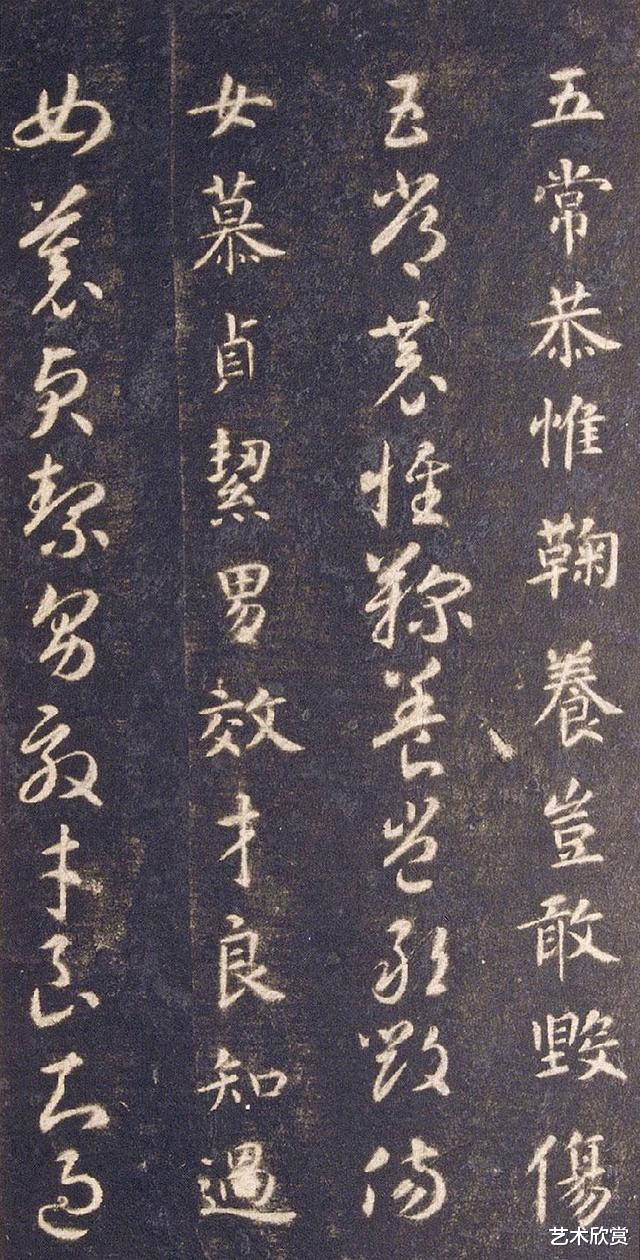 五常恭惟鞠養豈敢毀傷
五常恭惟鞠養豈敢毀傷
女慕貞絜男效才良知過
女慕貞絜男效才良知過
艺术欣赏